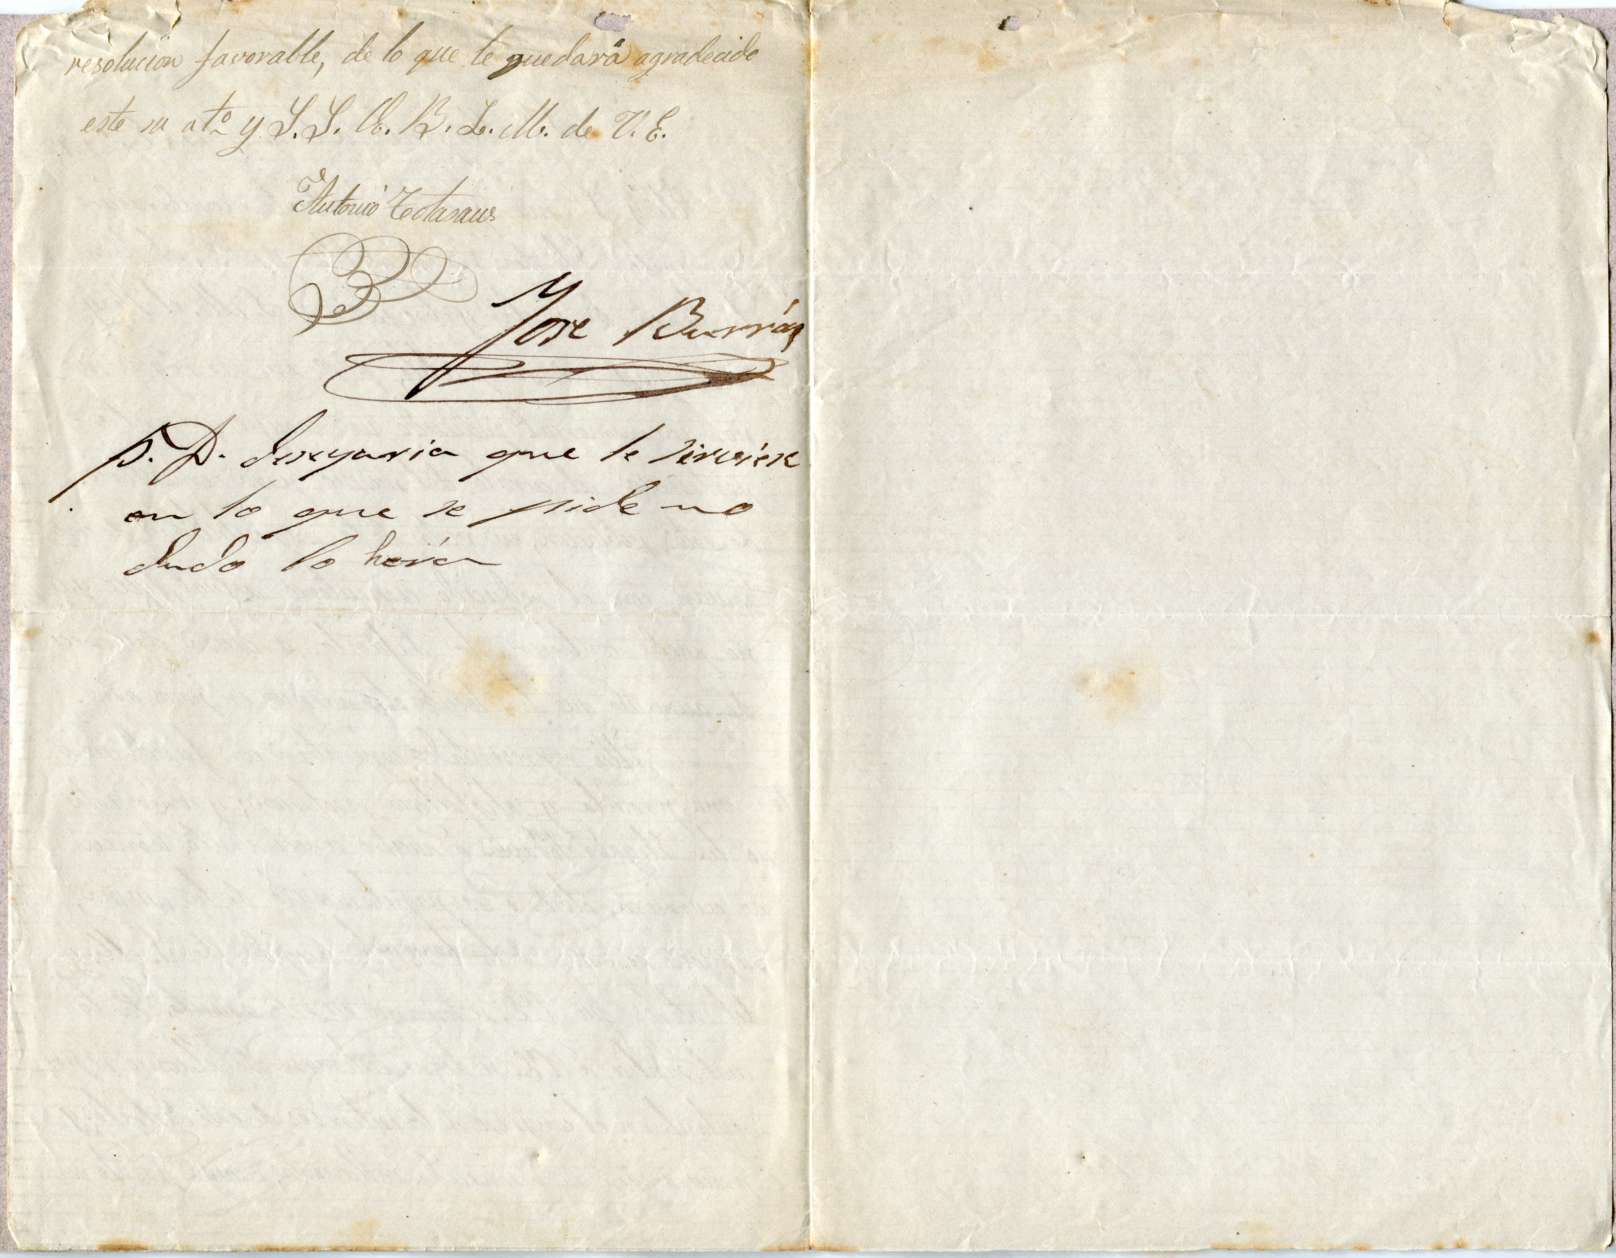 resolución favorable, de lo que te quedará agradecido
este su atº y S.S. Q. B. L. M. de V. E.
Antonio
José Burrás
P. D. deseyaria que le sirviese
en lo que se pide no
dudo lo hará